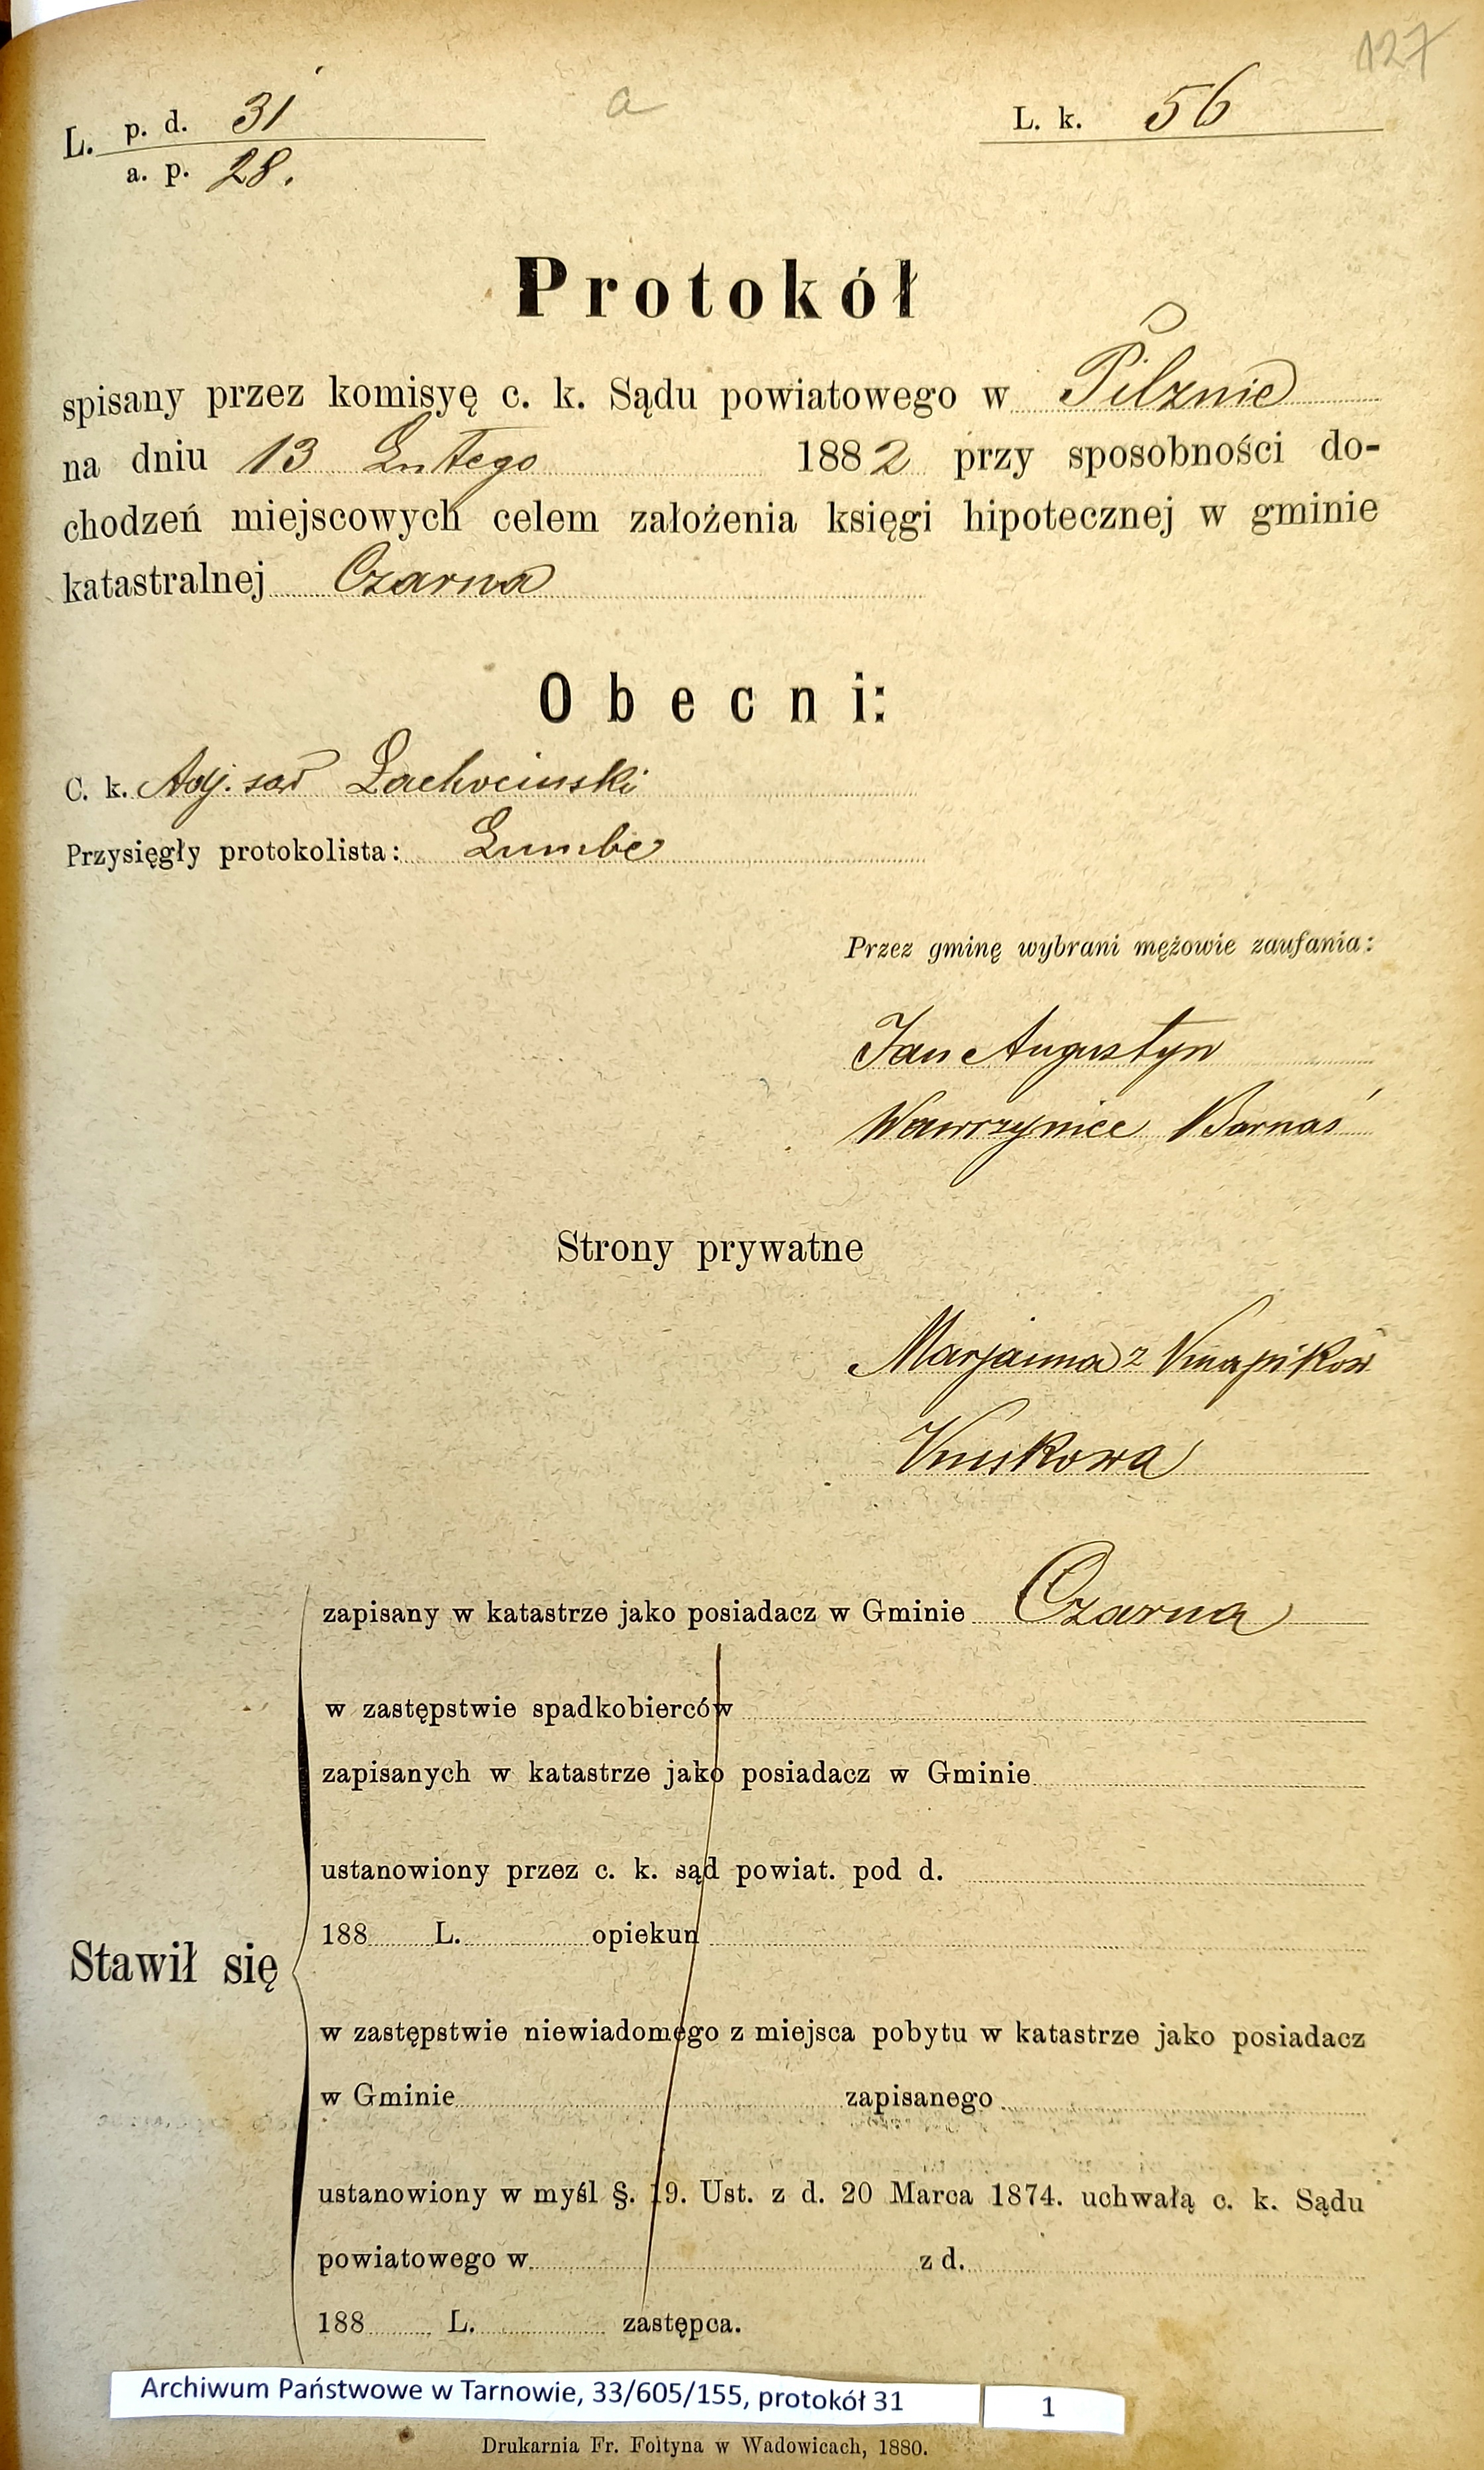 127
L. p. d. 31 a L. k. 56
a. p. 28.
Protokół
spisany przez komisyę c. k. Sądu powiatowego w Pilznie
na dniu 13 Lutego 1882 przy sposobności do-
chodzeń miejscowych celem założenia księgi hipotecznej w gminie
katastralnej Czarna
Obecni:
C. k. Adj. sąd Lachociński
Przysięgły protokolista: Lumbe
Przez gminę wybrani mężowie zaufania:
Jan Augustyn
Wawrzyniec Barnaś
Strony prywatne
Marjanna z Knapików
Kuskowa
zapisany w katastrze jako posiadacz w Gminie Czarna
w zastępstwie spadkobierców
zapisanych w katastrze jako posiadacz w Gminie
ustanowiony przez c. k. sąd powiat. pod d.
188 L. opiekun
Stawił się
w zastępstwie niewiadomego z miejsca pobytu w katastrze jako posiadacz
w Gminie zapisanego
ustanowiony w myśl §. 19. Ust. z d. 20 Marca 1874. uchwałą c. k. Sądu
powiatowego w z d.
188 L. zastępca.
Archiwum Państwowe w Tarnowie, 33/605/155, protokół 31 1
Drukarnia Fr. Foltyna w Wadowicach, 1880.